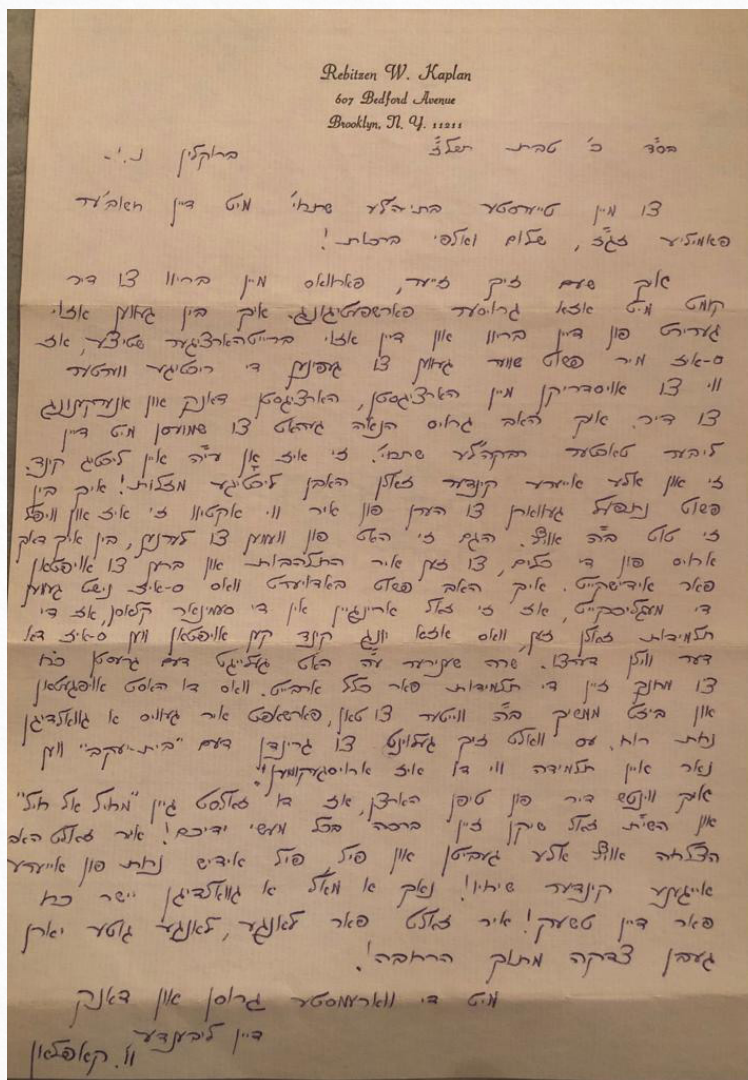 Rebitzen W. Kaplan
607 Bedford Avenue
Brooklyn, N. Y. 11211
בס"ד כ' טבת תשל"ג ברוקלין נ.י.
צו מיין טייערסטער בתי'הלע שתחי' מיט דיין חשוב'ער
פאמיליע זגג"ז, שלום ואלפי ברכות!
איך שעם זיך זייער, פארוואס מיין בריוו צו דיר
קומט מיט אזא גרויסער פארשפעטיגונג. איך בין געווען אזוי
גערירט פון דיין בריוו און דיין אזוי ברייטהארציגער שטיצע, אז
ס-איז מיר פשוט שווער געווען צו געפינען די ריכטיגע ווערטער
ווי צו אויסדריקן מיין הארציגסטן, הארציגסטן דאנק און אנערקענונג
צו דיר. איך האב גרויס הנאה געהאט צו שמועסן מיט דיין
ליבער טאכטער רבקה'לע שתחי'. זי איז אן ע"ה איין ליכטיג קינד.
זי און אלע אייערע קינדער זאלן האבן ליכטיגע מזלות! איך בין
פשוט נתפעל געווארן צו הערן פון איר ווי אקטיוו זי איז און וויפל
זי טוט ב"ה אויף. הגם זי האט פון וועמען צו לערנען, בין איך דאך
ארויס פון די כלים, צו זען איר התלהבות און ברען צו אויפטאן
פאר אידישקייט. איך האב פשוט באדויערט וואס ס-איז נישט געווען
די מעגליכקייט, אז זי זאל אריינגיין אין די סעמינאר קלאסן, אז די
תלמידות זאלן זען, וואס אזא יונג קינד קען אויפטאן ווען ס-איז דא
דער ווילן דערצו. שרה שנירער ע"ה האט געלייגט דעם גרעסטן כח
צו מחנך זיין די תלמידות פאר כלל ארבייט. וואס דו האסט אויפגעטאן
און ביזט ממשיך ב"ה ווייטער צו טאן, פארשאפט איר געוויס א געוואלדיגן
נחת רוח. עס וואלט זיך געלוינט צו גרינדן דעם "בית-יעקב" ווען
נאר איין תלמידה ווי דו איז ארויסגעקומען!
איך ווינטש דיר פון טיפן הארצן, אז דו זאלסט גיין "מחיל אל חיל"
און השי"ת זאל שיקן זיין ברכה בכל מעשי ידיכם! איר זאלט האבן
הצלחה אויף אלע געביטן און פיל, פיל אידיש נחת פון אייערע
אייגענע קינדער שיחיו! נאך א מאל א געוואלדיגן יישר כח
פאר דיין טשעק! איר זאלט פאר לאנגע, לאנגע גוטע יארן
געבן צדקה מתוך הרחבה!
מיט די ווארעמסטע גרוסן און דאנק
דיין ליבענדע
וו. קאפלאן